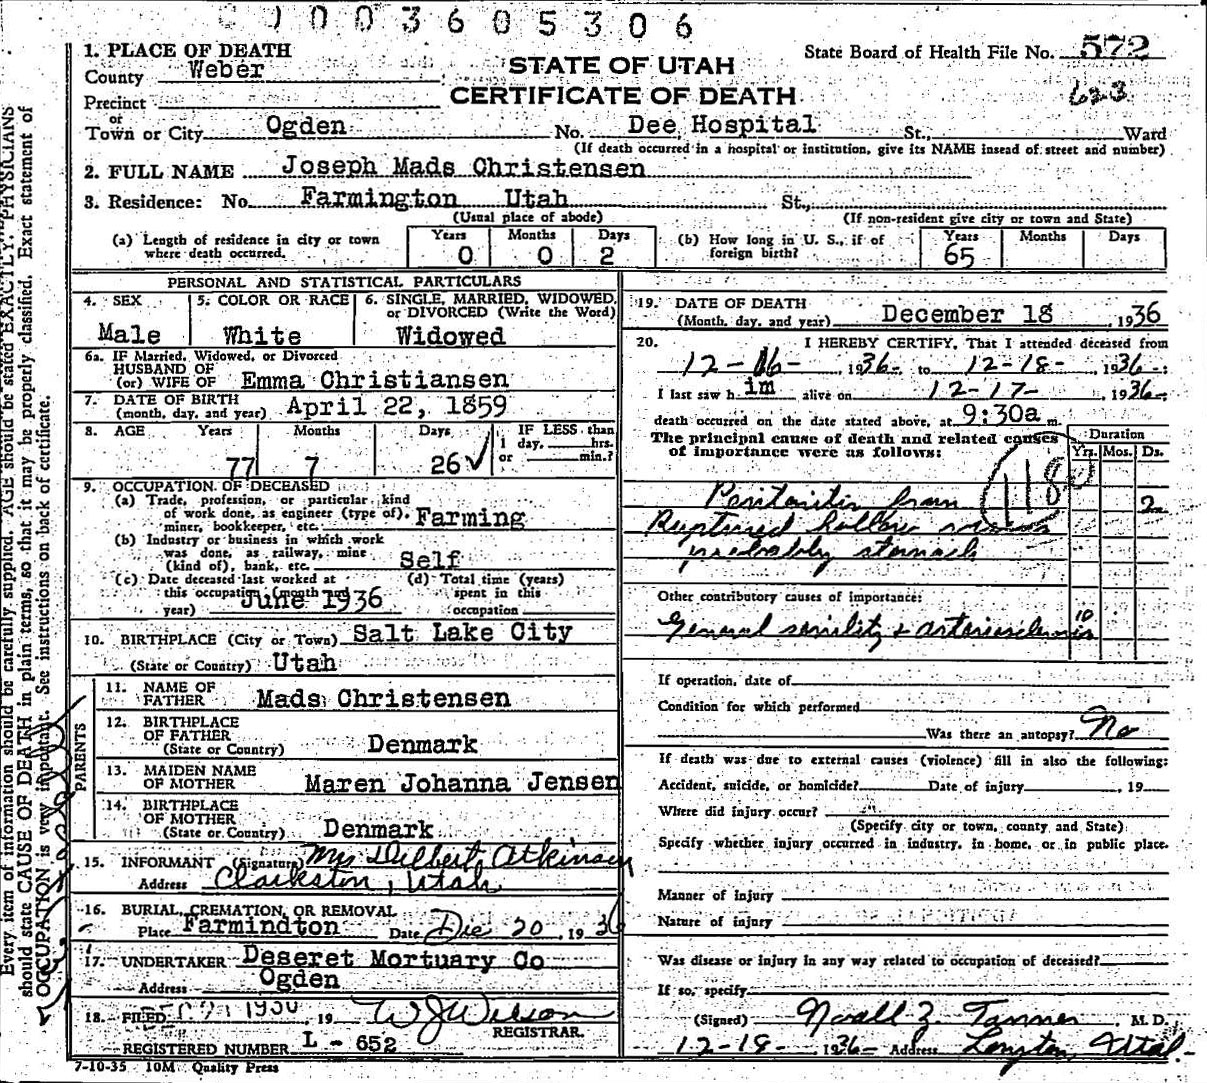 0003605306
1. PLACE OF DEATH
County Weber
STATE OF UTAH
State Board of Health File No. 572
Precinct
CERTIFICATE OF DEATH
623
or
Town or City Ogden No. Dee Hospital St., Ward
(If death occurred in a hospital or institution, give its NAME insead of street and number)
2. FULL NAME Joseph Mads Christensen
3. Residence: No. Farmington Utah St.,
(Usual place of abode) (If non-resident give city or town and State)
(a) Length of residence in city or town where death occurred. Years 0 Months 0 Days 2
(b) How long in U. S., if of foreign birth? Years 65 Months Days
PERSONAL AND STATISTICAL PARTICULARS
4. SEX Male
5. COLOR OR RACE White
6. SINGLE, MARRIED, WIDOWED, or DIVORCED (Write the Word) Widowed
6a. IF Married, Widowed, or Divorced
HUSBAND OF
(or) WIFE OF Emma Christiansen
7. DATE OF BIRTH
(month, day, and year) April 22, 1859
8. AGE Years 77 Months 7 Days 26
IF LESS than
1 day, hrs.
or min.?
9. OCCUPATION OF DECEASED
(a) Trade, profession, or particular kind
of work done, as engineer (type of),
miner, bookkeeper, etc. Farming
(b) Industry or business in which work
was done, as railway, mine
(kind of), bank, etc. Self
(c) Date deceased last worked at
this occupation (month and
year) June 1936
(d) Total time (years)
spent in this
occupation
10. BIRTHPLACE (City or Town) Salt Lake City
(State or Country) Utah
PARENTS
11. NAME OF
FATHER Mads Christensen
12. BIRTHPLACE
OF FATHER
(State or Country) Denmark
13. MAIDEN NAME
OF MOTHER Maren Johanna Jensen
14. BIRTHPLACE
OF MOTHER
(State or Country) Denmark
15. INFORMANT (Signature) Mrs Delbert Atkinson
Address Clarkston, Utah
16. BURIAL, CREMATION, OR REMOVAL
Place Farmindton Date Dec 20, 1936
17. UNDERTAKER Deseret Mortuary Co
Address Ogden
18. FILED 1936, 19 W J Wilson
REGISTRAR.
REGISTERED NUMBER L - 652
7-10-35 10M Quality Press
19. DATE OF DEATH
(Month, day, and year) December 18, 1936
20. I HEREBY CERTIFY, That I attended deceased from
12-16-, 1936- to 12-18-, 1936-;
I last saw h im alive on 12-17-, 1936-
death occurred on the date stated above, at 9:30a m.
The principal cause of death and related causes
of importance were as follows:
Duration
Yrs. Mos. Ds.
118
Peritonitis from 2
Ruptured hollow
probably stomach
Other contributory causes of importance:
General senility & arteriosclerosis 10
If operation, date of
Condition for which performed
Was there an autopsy? No
If death was due to external causes (violence) fill in also the following:
Accident, suicide, or homicide? Date of injury, 19
Where did injury occur?
(Specify city or town, county and State)
Specify whether injury occurred in industry, in home, or in public place.
Manner of injury
Nature of injury
Was disease or injury in any way related to occupation of deceased?
If so, specify
(Signed) Noall Z. Tanner M. D.
12-18- 1936- Address Layton, Utah
Every item of information should be carefully supplied. AGE should be stated EXACTLY. PHYSICIANS
should state CAUSE OF DEATH in plain terms, so that it may be properly classified. Exact statement of
OCCUPATION is very important. See instructions on back of certificate.